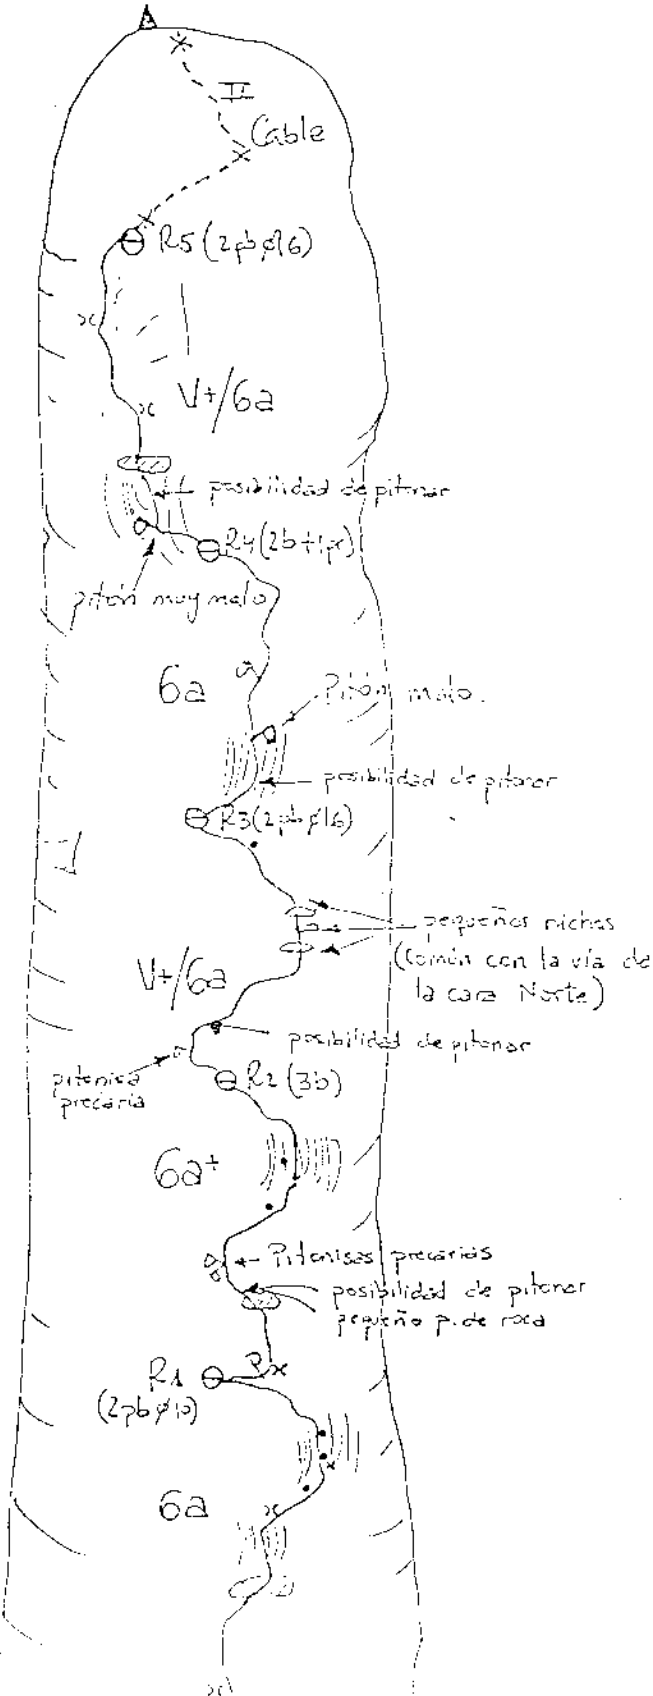 II
Cable
R5 (2pb ø16)
V+/6a
posibilidad de pitonar
R4 (2b+1p)
pitón muy malo
6a
Pitón malo.
posibilidad de pitonar
R3 (2pb ø16)
pequeños nichos
(común con la vía de
la cara Norte)
V+/6a
posibilidad de pitonar
pitonisa
precaria
R2 (3b)
6a+
Pitonisas precarias
posibilidad de pitonar
pequeño p. de roca
R1
(2pb ø10)
6a